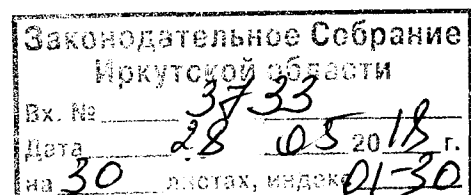 Законодательное Собрание
Иркутской области
Вх. № 3733
Дата 28 05 2018 г.
на 30 листах, индекс 01-30